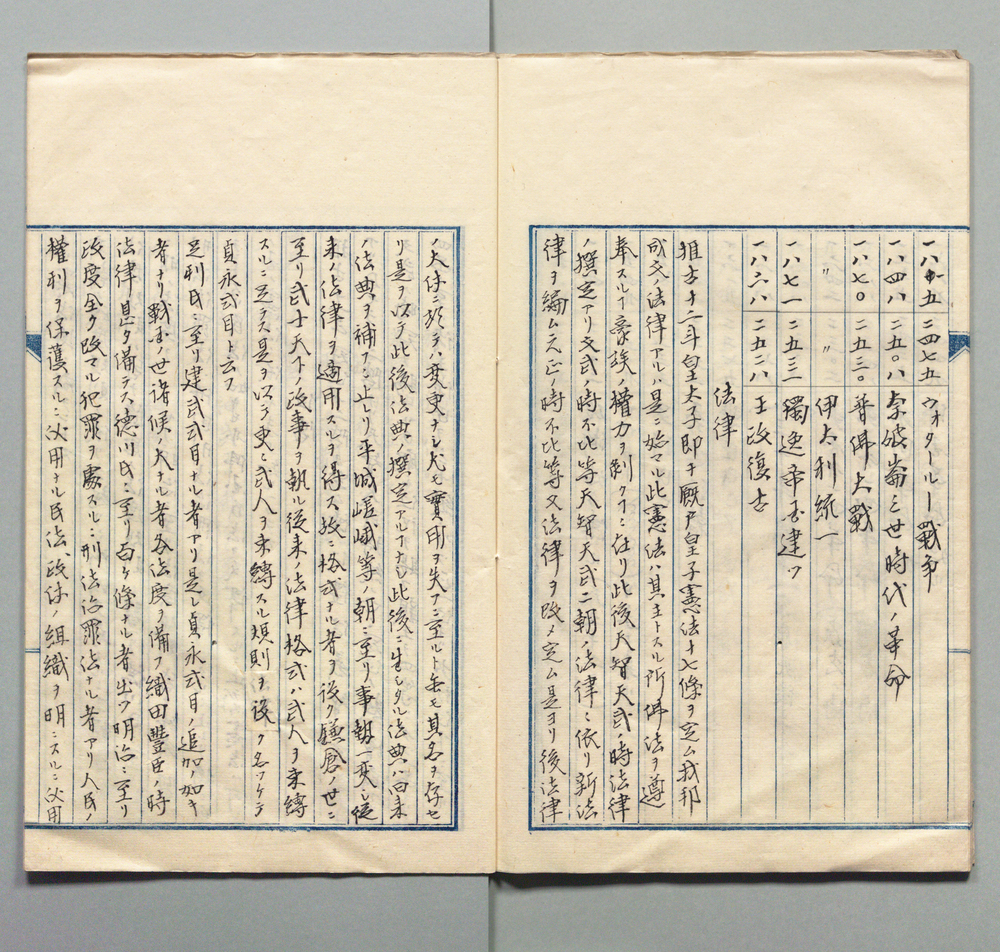 一八十五 二四七五 ウォータールー戰争
一八四八 二五〇八 奈破崙三世時代ノ革命
一八七〇 二五三〇 普佛大戰
〃 〃 伊太利統一
一八七一 二五三一 獨逸帝国建ツ
一八六八 二五二八 王政復古
法律
推古十二年皇太子即チ厩戸皇子憲法十七條ヲ定ム我邦
成文ノ法律アルハ是ニ始マル此憲法ハ其主トスル所佛法ヲ遵
奉スルト豪族ノ權力ヲ剥クニ在リ此後天智天武ノ時法律
ノ撰定アリ文武ノ時不比等天智天武二朝ノ法律ニ依リ新法
律ヲ編ム元正ノ時不比等又法律ヲ改メ定ム是ヨリ後法律
ノ大体ニ於テハ変更ナシ尤モ實用ヲ失フニ至ルト雖モ其名ヲ存セ
リ是ヲ以テ此後法典ノ撰定アルナシ此後ニ生シタル法典ハ旧来
ノ法典ヲ補フニ止レリ平城嵯峨等ノ朝ニ至リ事勢一変シ従
来ノ法律ヲ適用スルヲ得ス故ニ格式ナル者ヲ設ク鎌倉ノ世ニ
至リ武士天下ノ政事ヲ執ル從来ノ法律格式ハ武人ヲ束縛
スルニ足ラス是ヲ以テ更ニ武人ヲ束縛スル規則ヲ設ク名ツケテ
貞永式目ト云フ
足利氏ニ至リ建武式目ナル者アリ是レ貞永式目ノ追加ノ如キ
者ナリ戰国ノ世諸候ノ大ナル者各法度ヲ備フ織田豐臣ノ時
法律甚タ備ラス德川氏ニ至リ百ケ條ナル者出ツ明治ニ至リ
政度全ク改マル犯罪ヲ處スルニ刑法治罪法ナル者アリ人民ノ
權利ヲ保護スルニ必用ナル民法、政体ノ組織ヲ明ニスルニ必用